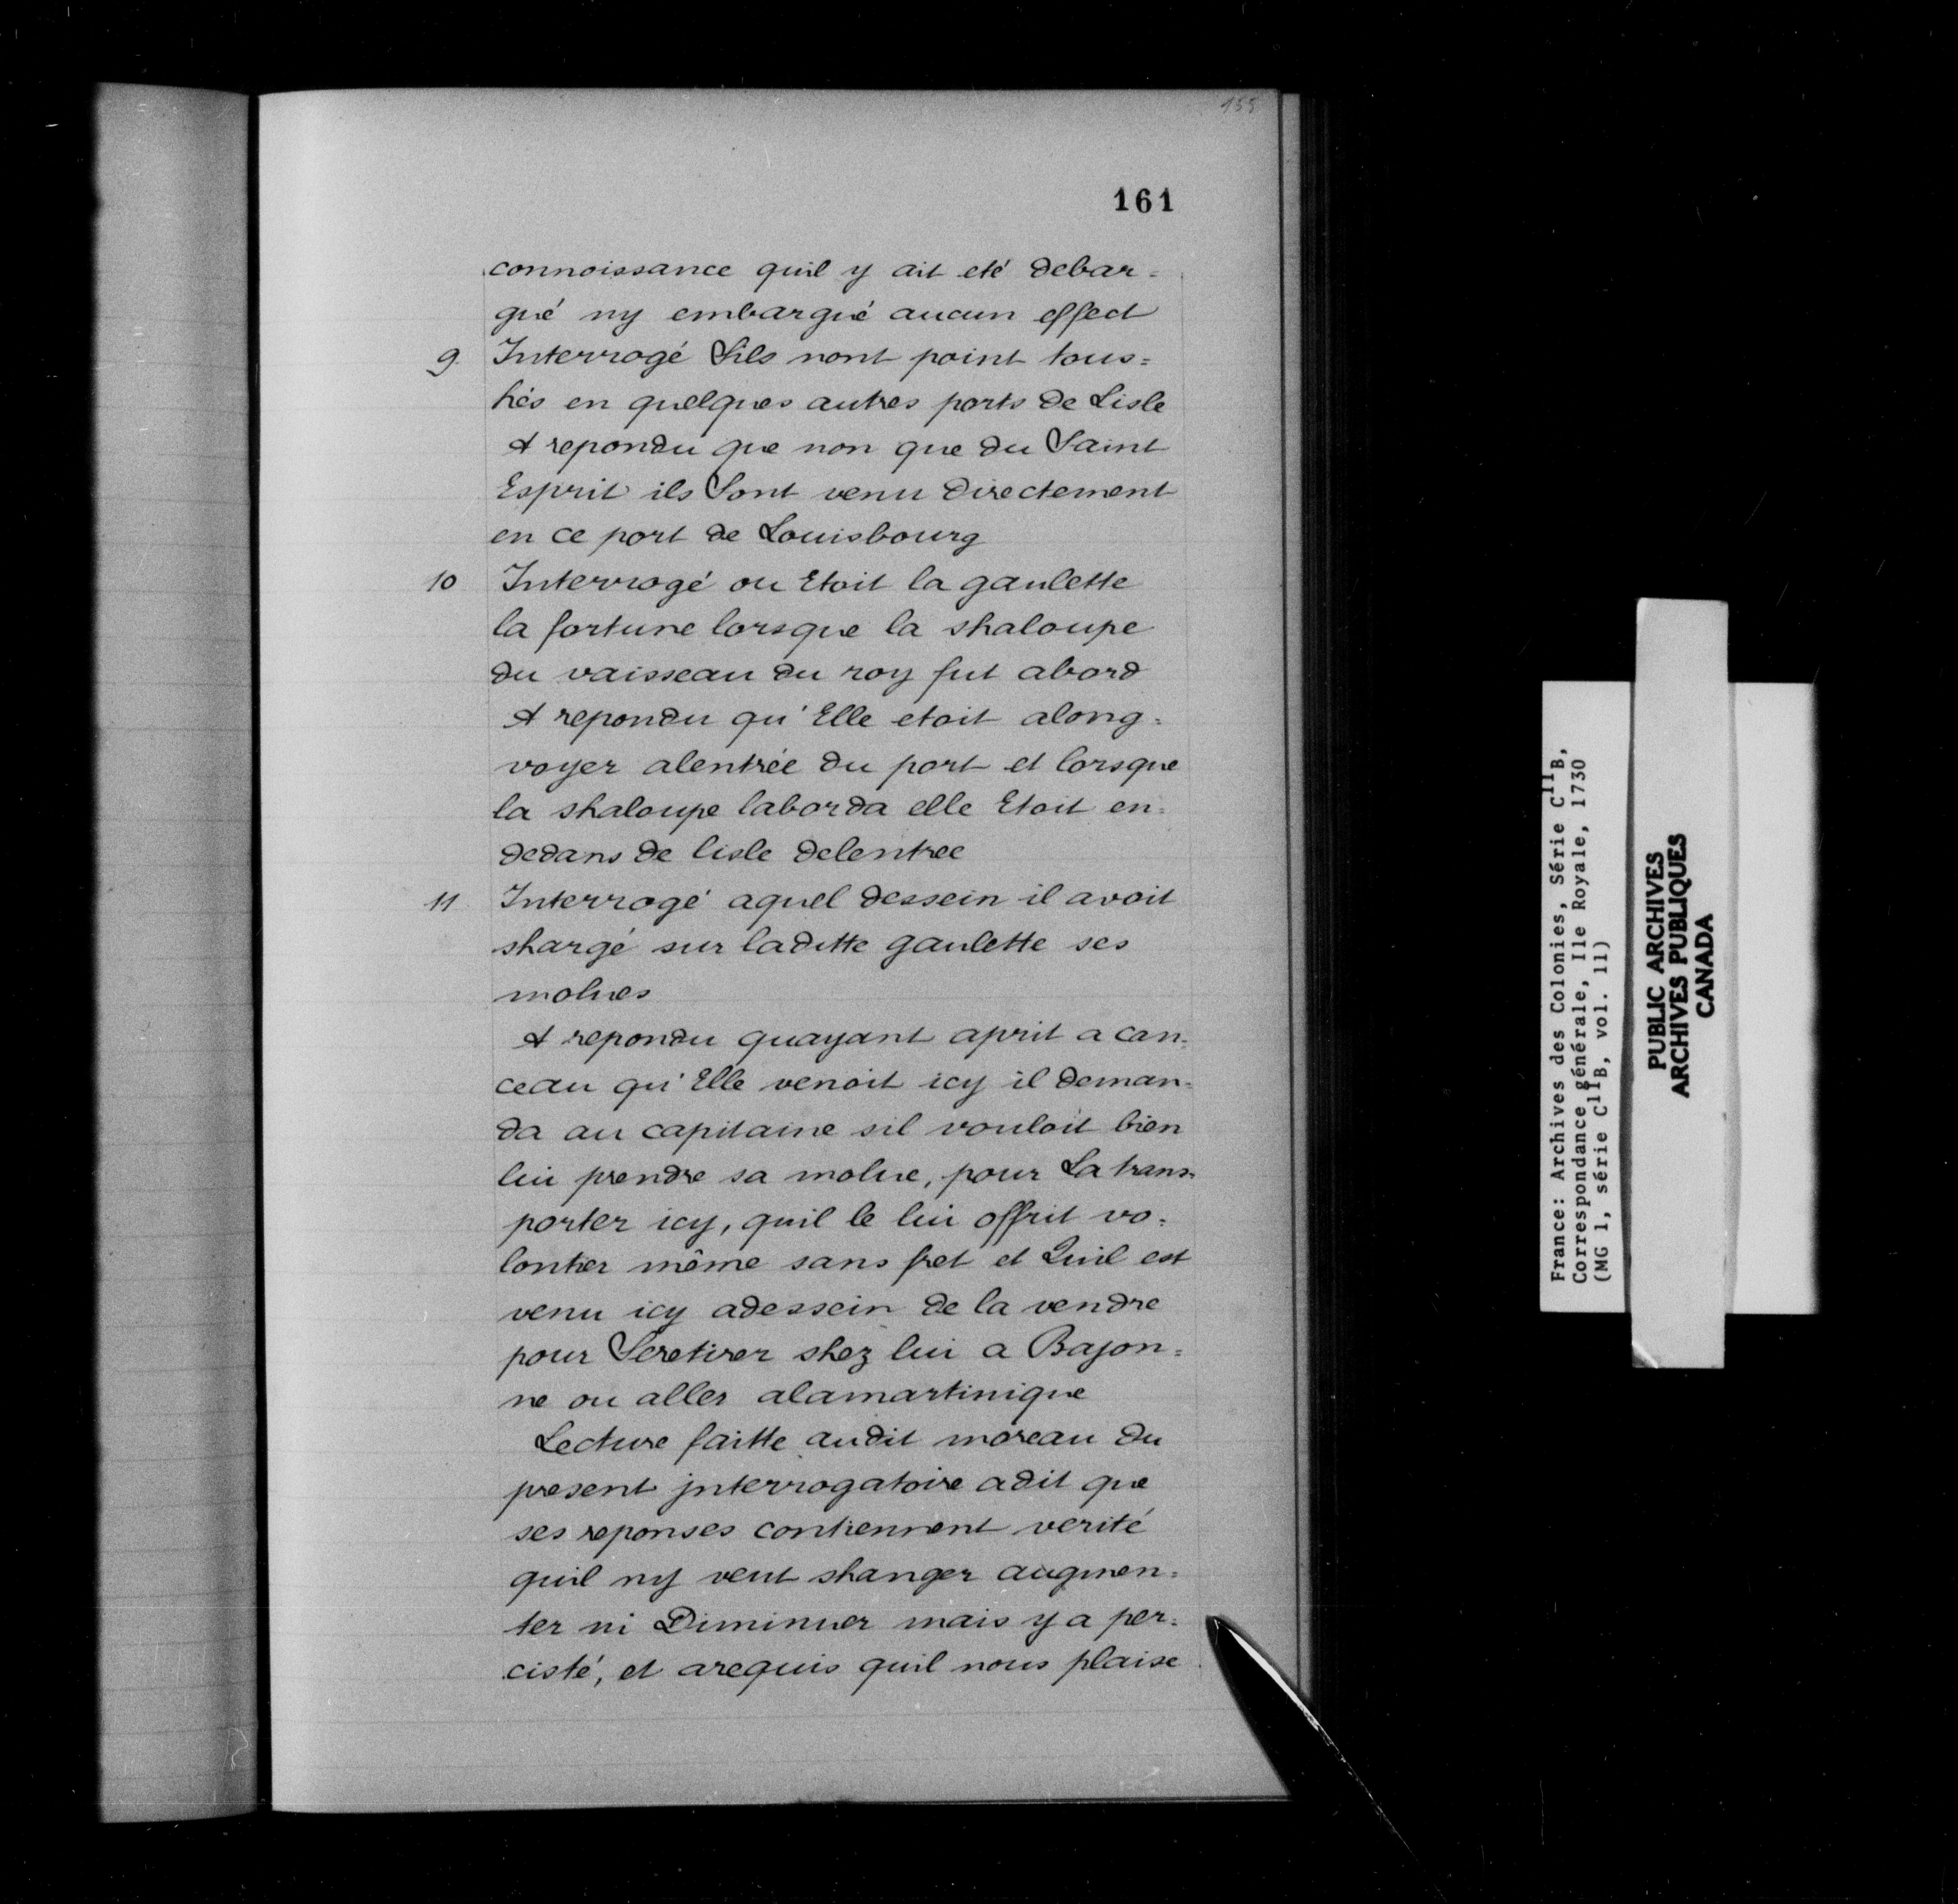 155
161
connoissance quil y ait eté debar=
qué ny embarqué aucun effect
9 Interrogé Sils nont point tous=
hés en quelques autres ports de Lisle
A repondu que non que du Saint
Esprit ils Sont venu directement
en ce port de Louisbourg
10 Interrogé ou Etoit la gaulette
la fortune lorsque la shaloupe
du vaisseau du roy fut abord
A repondu qu'Elle etoit along=
voyer alentrée du port et lorsque
la shaloupe laborda elle Etoit en=
dedans de lisle delentree
11 Interrogé aquel dessein il avoit
shargé sur laditte gaulette ses
molues
A repondu quayant aprit a can=
ceau qu'Elle venoit icy il deman=
da au capitaine sil vouloit bien
lui prendre sa molue, pour La trans=
porter icy, quil le lui offrit vo=
lontier même sans fret et Quil est
venu icy adessein de la vendre
pour Seretirer shez lui a Bajon=
ne ou aller alamartinique
Lecture faitte audit moreau du
present jnterrogatoire adit que
ses reponses contiennent verité
quil ny veut shanger augmen=
ter ni Diminuer mais y a per=
cisté, et arequis quil nous plaise
France: Archives des Colonies, Série C11B,
Correspondance générale, Ile Royale, 1730
(MG 1, série C11B, vol. 11)
PUBLIC ARCHIVES
ARCHIVES PUBLIQUES
CANADA